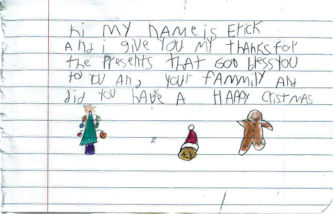 hi my name is Erick
And i give you my thanks for
the Presents that God bless you
to you And your fAmmily And
did you hAve A HAPPy Cristmas